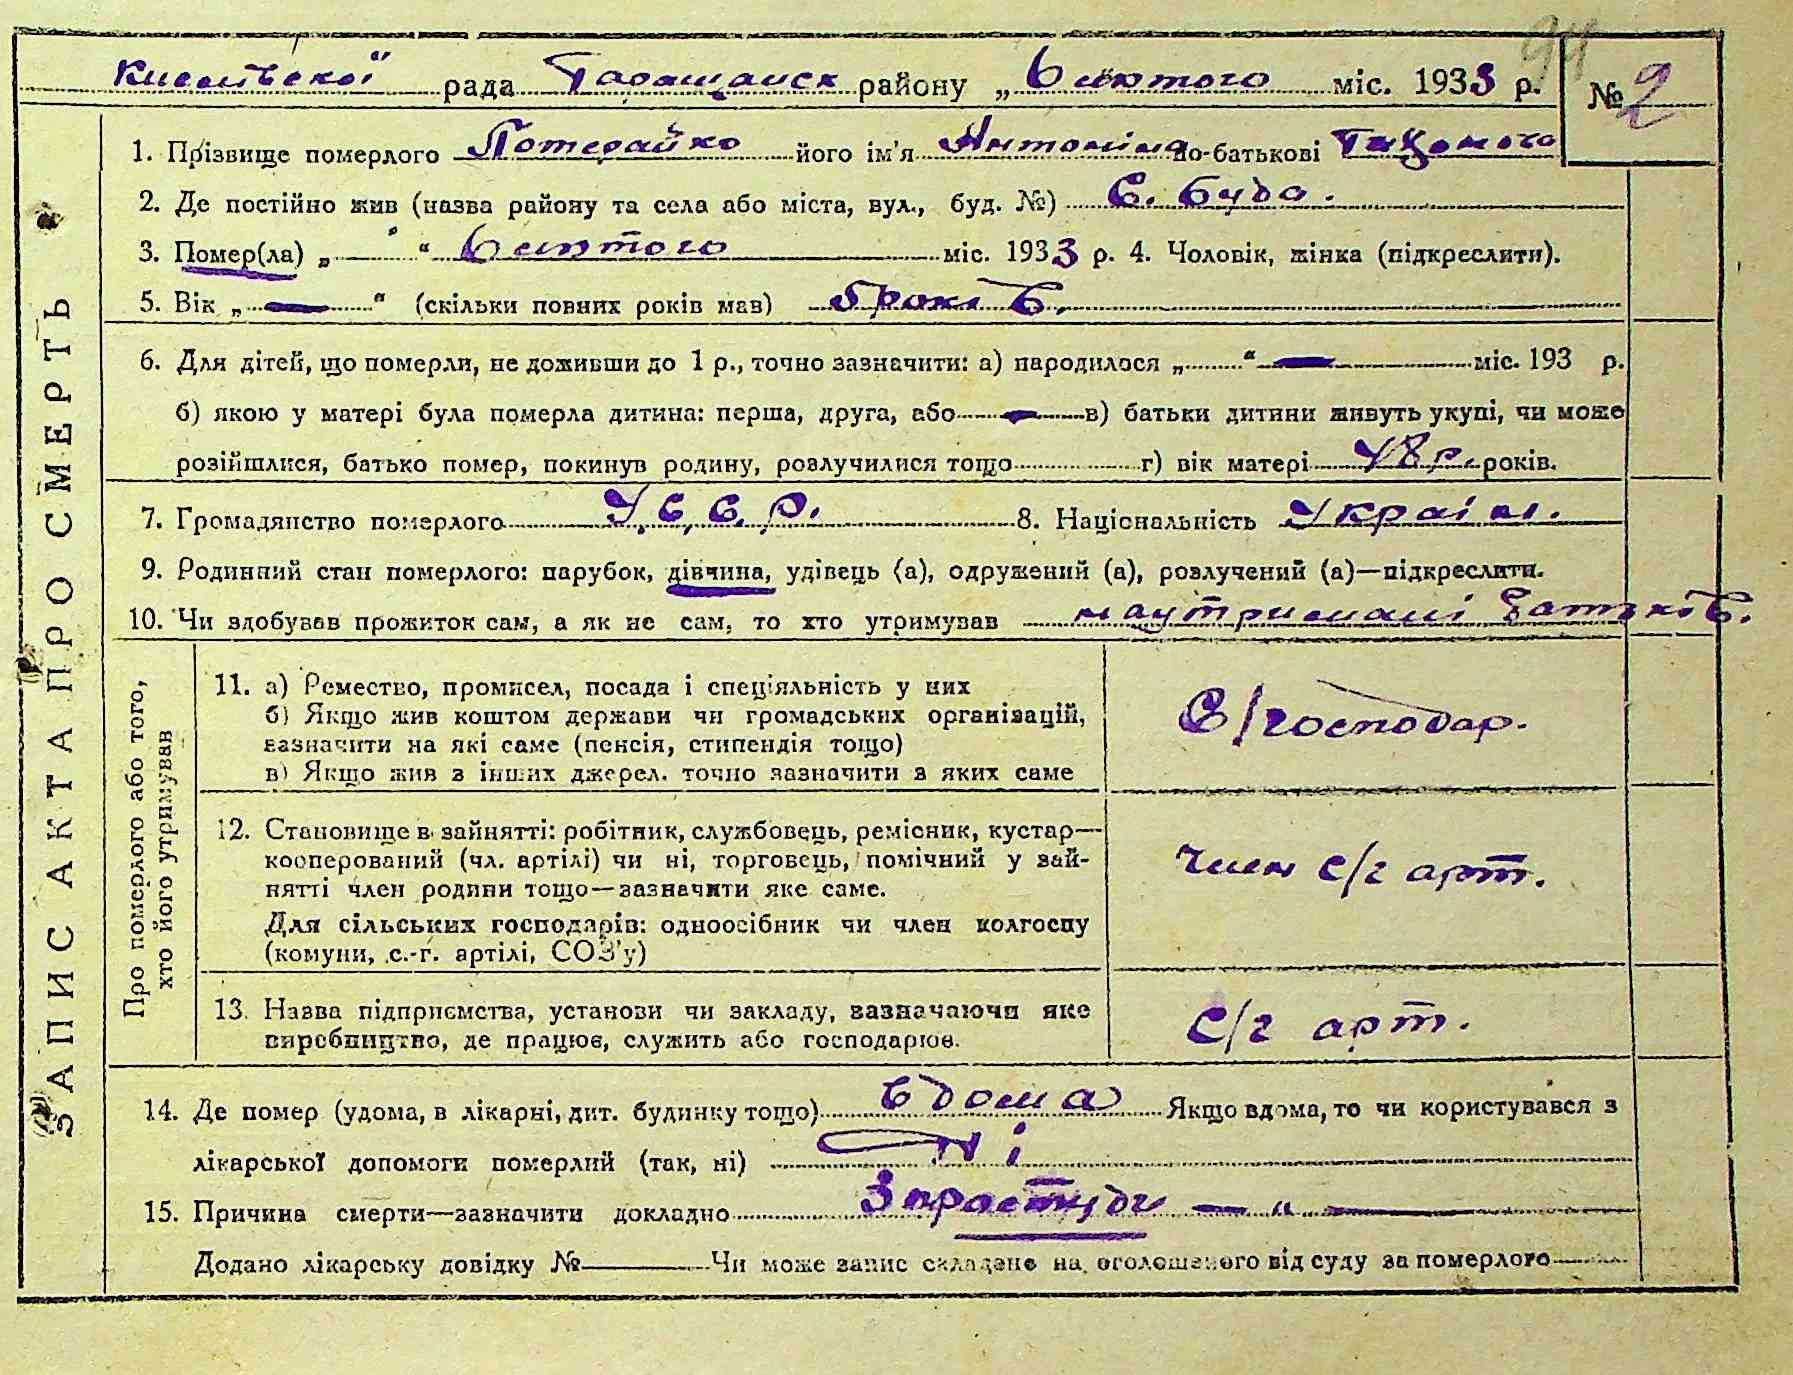 94
рада Таращанск району „ 6 лютого міс. 1933 р. № 2
1. Прізвище померлого Потерайко його ім'я Антоніна по-батькові
2. Де постійно жив (назва району та села або міста, вул., буд. №) С. Буда.
3. Помер(ла) „ “ 6 лютого міс. 1933 р. 4. Чоловік, жінка (підкреслити).
5. Вік „ — “ (скільки повних років мав)
6. Для дітей, що померли, не доживши до 1 р., точно зазначити: а) народилося „ “ — міс. 193 р.
б) якою у матері була померла дитина: перша, друга, або — в) батьки дитини живуть укупі, чи може
розійшлися, батько помер, покинув родину, розлучилися тощо г) вік матері 48 р. років.
7. Громадянство померлого У.С.С.Р. 8. Національність Україн.
9. Родинний стан померлого: парубок, дівчина, удівець (а), одружений (а), розлучений (а)—підкреслити.
10. Чи здобував прожиток сам, а як не сам, то хто утримував на утриманні батьків.
ЗАПИС АКТА ПРО СМЕРТЬ
Про померлого або того,
хто його утримував
11. а) Ремество, промисел, посада і спеціяльність у них
б) Якщо жив коштом держави чи громадських організацій,
зазначити на які саме (пенсія, стипендія тощо)
в) Якщо жив з інших джерел. точно зазначити з яких саме
С/господар.
12. Становище в зайнятті: робітник, службовець, ремісник, кустар—
кооперований (чл. артілі) чи ні, торговець, помічний у зай-
нятті член родини тощо—зазначити яке саме.
Для сільських господарів: одноосібник чи член колгоспу
(комуни, с.-г. артілі, СОЗ'у)
член с/г арт.
13. Назва підприємства, установи чи закладу, зазначаючи яке
виробництво, де працює, служить або господарює.
с/г арт.
14. Де помер (удома, в лікарні, дит. будинку тощо) вдома Якщо вдома, то чи користувався з
лікарської допомоги померлий (так, ні) Ні
15. Причина смерти—зазначити докладно З простуди — „ —
Додано лікарську довідку № Чи може запис складено на оголошеного від суду за померлого